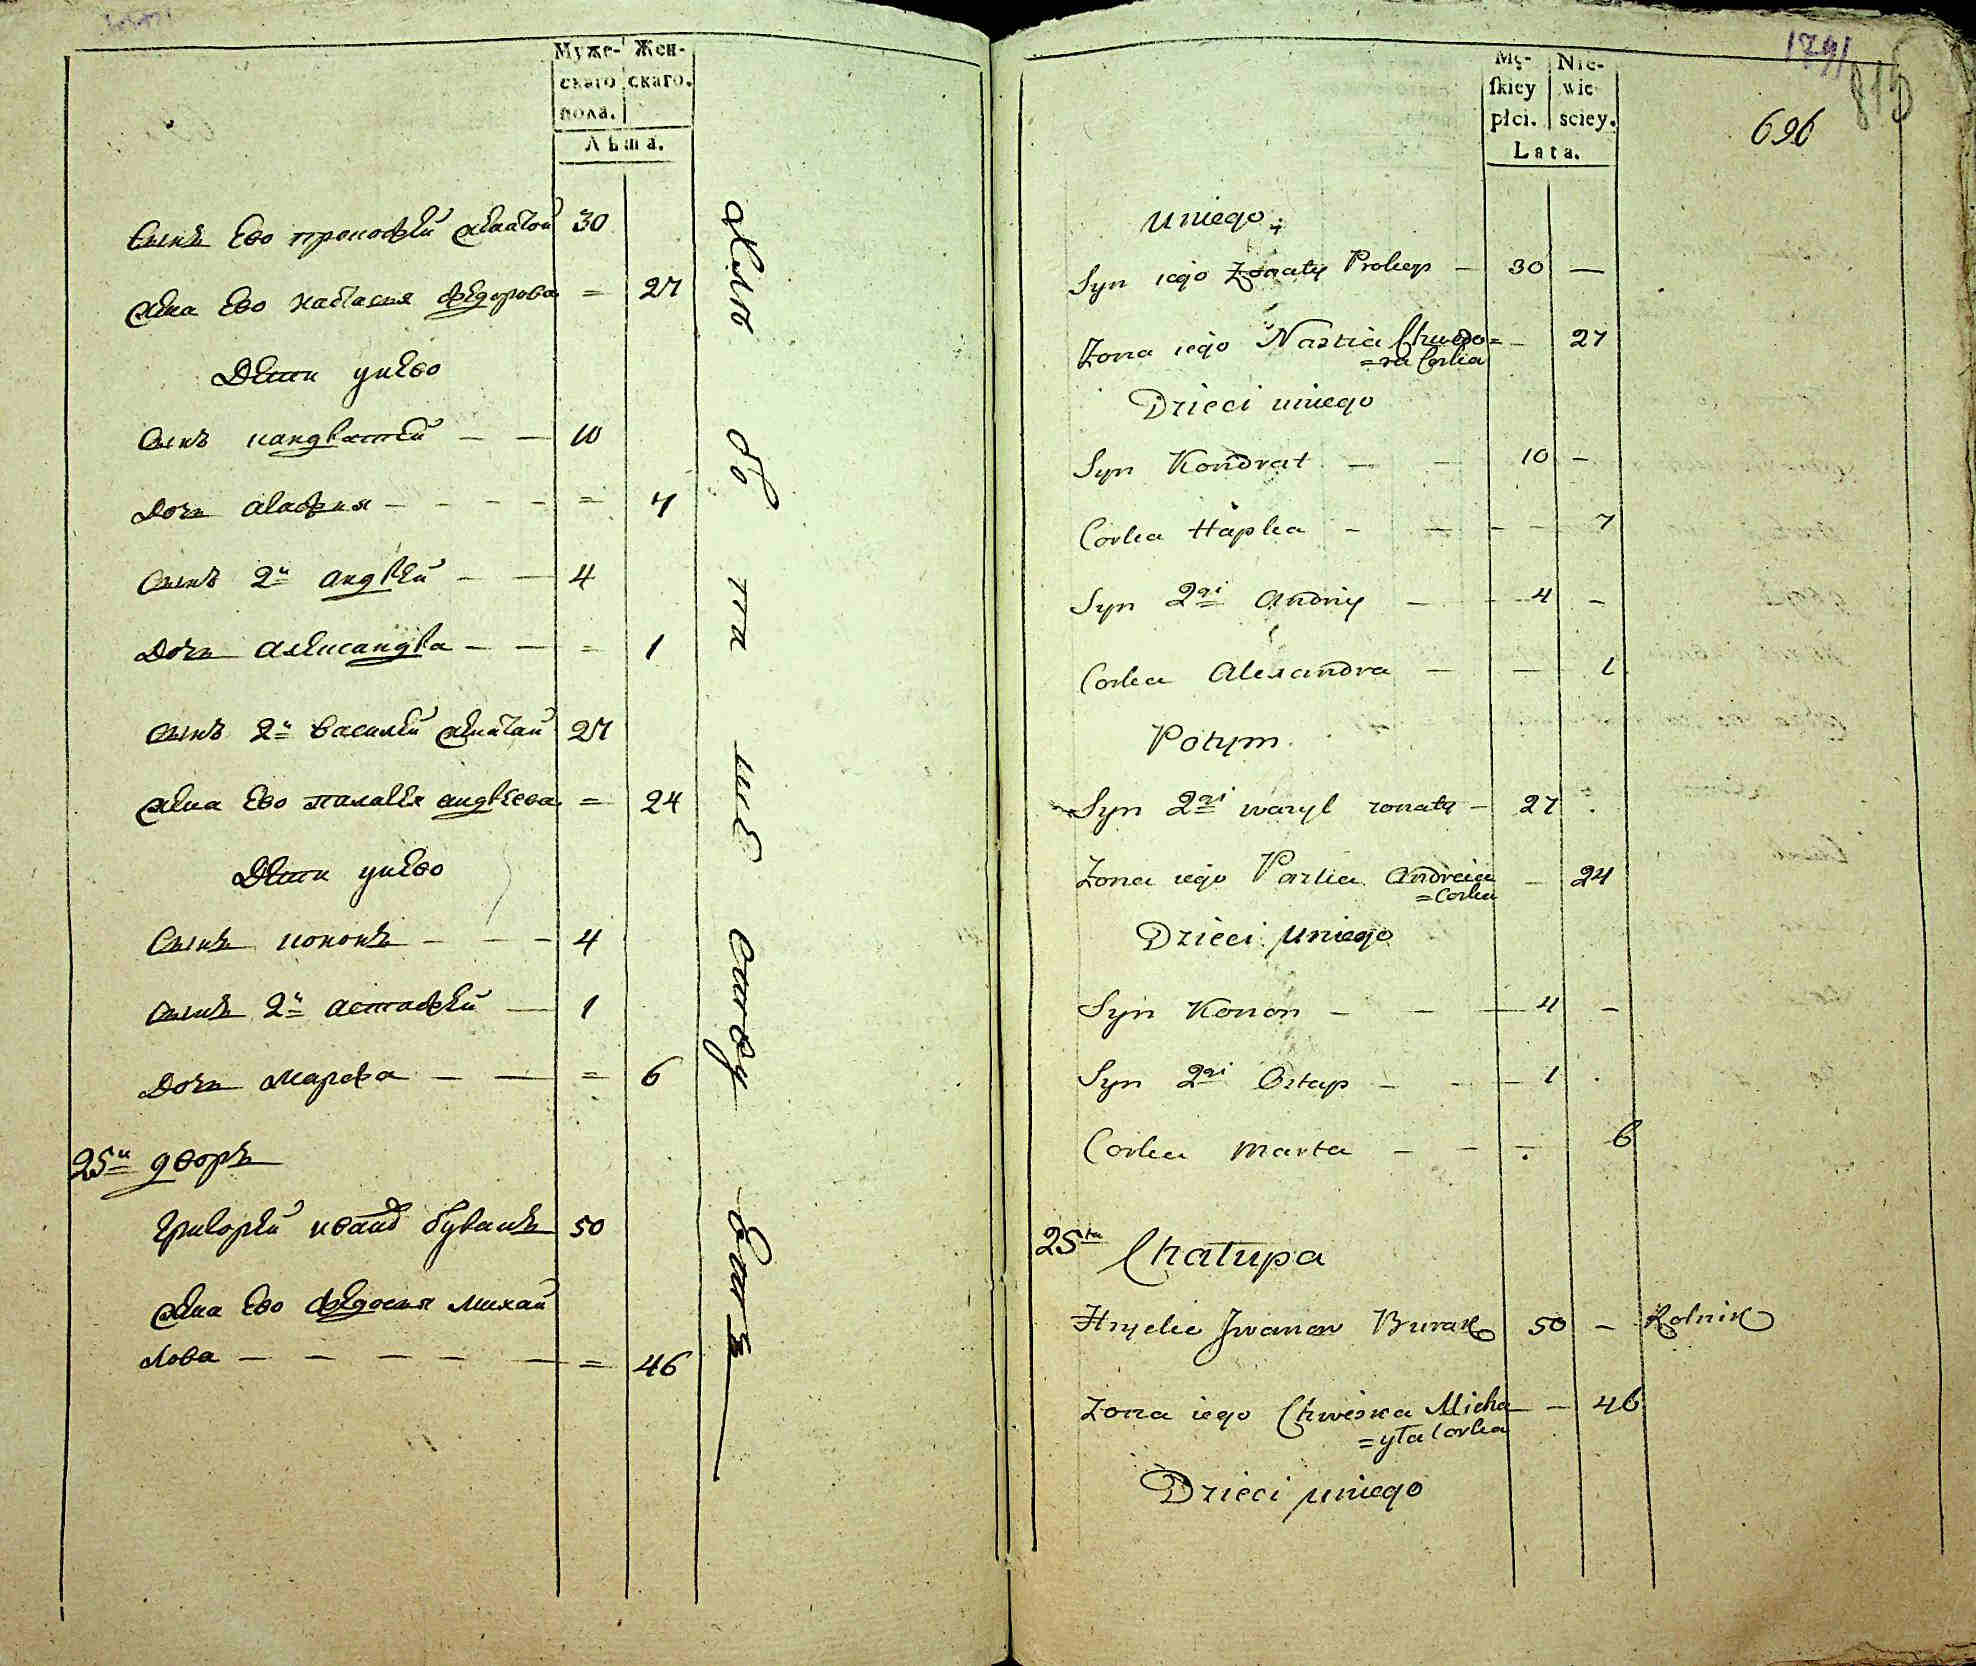 Муже-
скаго
пола.
Жен-
скаго.
Лѣта.
Сынъ Ево прокофей женатой 30
жена Ево настасия федорова = 27
Дети унево
Сынъ кандратей — — 10
Дочь агафия — — — — = 7
Сынъ 2й андрей — — 4
Дочь александра — — = 1
Сынъ 2й василей женатай 27
жена Ево палагея андреева = 24
Дети унево
Сынъ кононъ — — — 4
Сынъ 2й астафей — 1
Дочь марфа — — = 6
25й дворъ
Григорей иванов буракъ 50
жена Ево федосия михаи
лова — — — — — = 46
1791
815
696
Mę-
skiey
płci.
Nie-
wie-
sciey.
Lata.
Uniego:
Syn iego Zonaty Prokop — 30 —
Zona iego Nastia Chwedo= — 27
=ra Corka
Dzieci uniego
Syn Kondrat — — 10 —
Corka Hapka — — — — 7
Syn 2gi Andriy — — 4 —
Corka Alexandra — — 1
Potym
Syn 2gi wasyl zonaty — 27
Zona iego Paska Andreia — 24
=Corka
Dzieci Uniego
Syn Konon — — — 4 —
Syn 2gi Ostap — — — 1
Corka Marta — — — 6
25ta Chałupa
Hryćko Jwanow Burak 50 — Rolnik
Zona iego Chweśka Micha — — 46
=yła Corka
Dzieci uniego